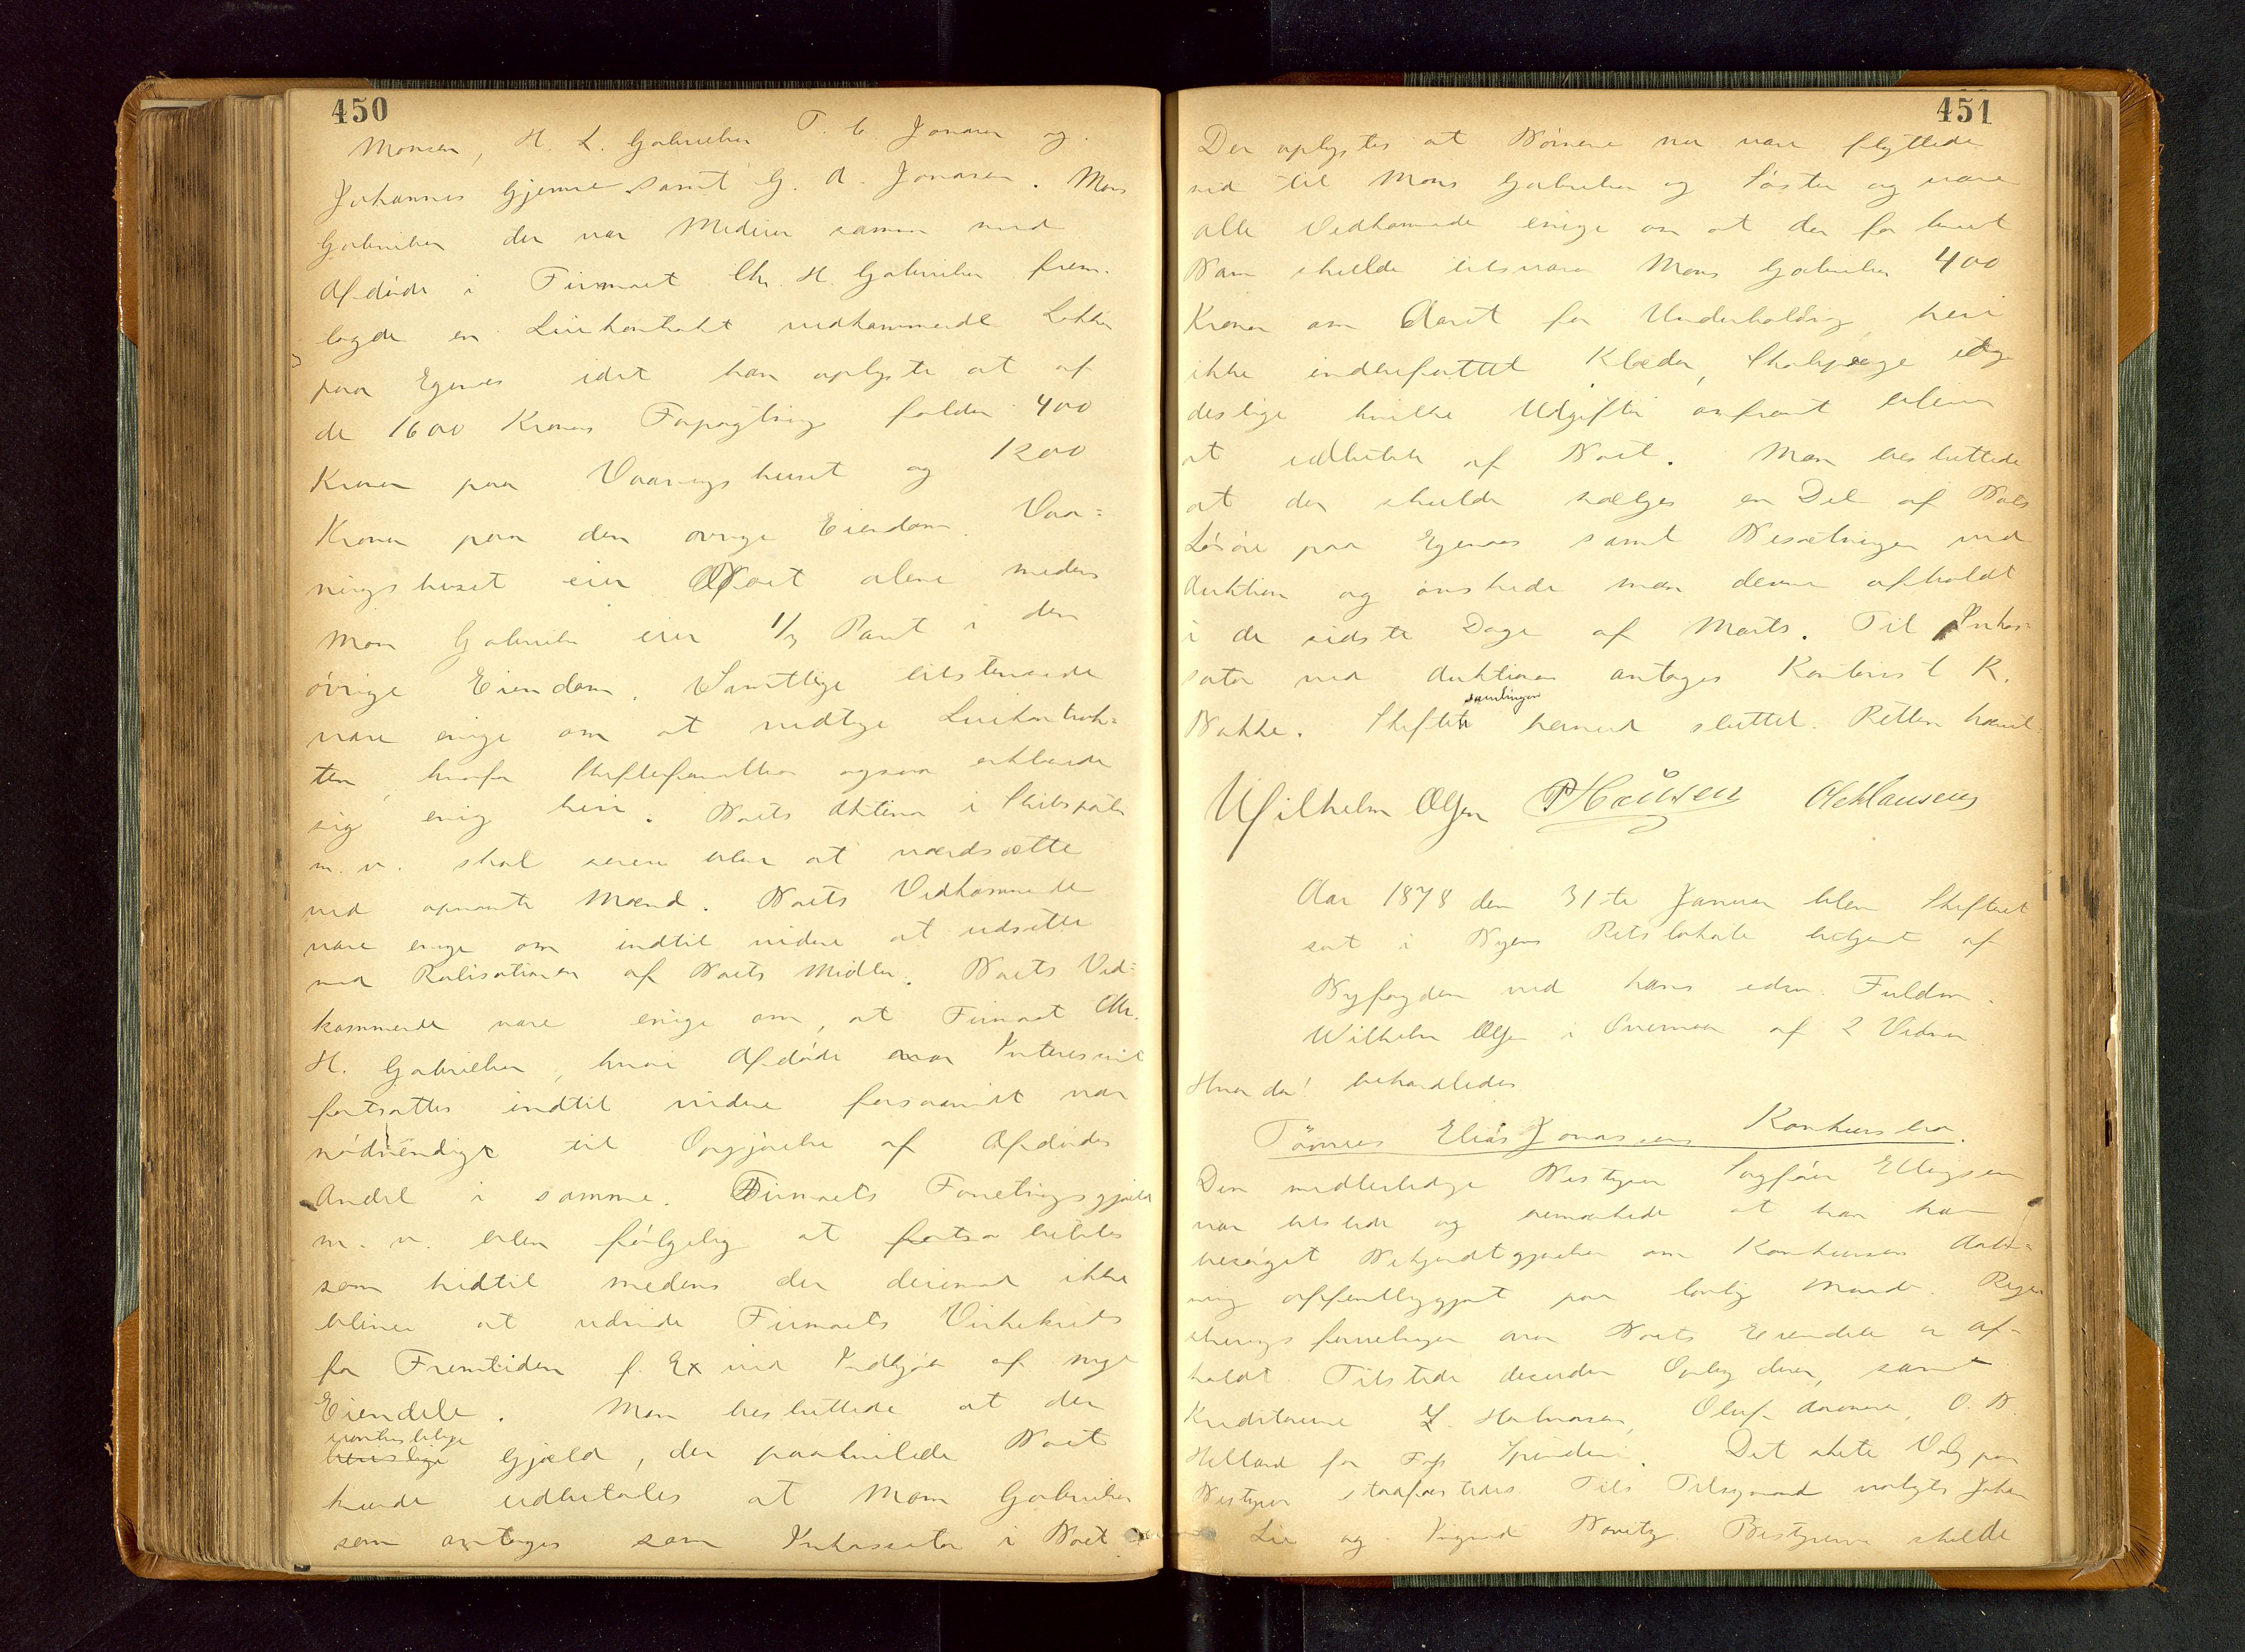 450
Monsen, H. L. Gabrielsen T. C. Jonasen og
Johannes Gjemre samt G. A. Jonasen. Mons
Gabrielsen der var Medeier sammen med
Afdøde i Firmaet Chr. H. Gabrielsen frem-
lagde en Leiekontrakt vedkommende Løkken
paa Egenes idet han oplyste at af
de 1600 Kroners Forpagtning falder 400
Kroner paa Vaaningshuset og 1200
Kroner paa den øvrige Eiendom. Vaa=
ningshuset eier Boet alene medens
Mons Gabrielsen eier 1/3 Part i den
øvrige Eiendom. Samtlige tilstædeværende
vare enige om at vedtage Leiekontrak=
ten, hvorfor Skifteforvalteren ogsaa erklærede
sig enig heri. Boets Aktiva i Skibsparter
m. v. skal senere blive at værdsætte
ved opnævnte Mænd. Boets Vedkommende
vare enige om indtil videre at udsætte
med Realisationen af Boets Midler. Boets Ved=
kommende vare enige om, at Firmaet Chr.
H. Gabrielsen, hvori Afdøde var Interessent
fortsættes indtil videre forsaavidt var
nødvendigt til Opgjørelse af Afdødes
Andel i samme. Firmaets Forretningsgjæld
m. v. blev følgelig at betales
som hidtil medens der derimod ikke
bliver at udvide Firmaets Virkekreds
for Fremtiden f. Ex ved Indkjøb af nye
Eiendele. Man besluttede at den
uomtvistelige
Gjæld, der paahvilede Boet
kunde udbetales at Mons Gabrielsen
som antages som Inkassator i Boet.
451
Der oplystes at Børnene nu vare flyttede
ned til Mons Gabrielsen og Søster og vare
alle Vedkommende enige om at der for hvert
Barn skulde tilsvares Mons Gabrielsen 400
Kroner om Aaret for Underholdning, heri
ikke indbefattet Klæder, Skolepenge og
deslige hvilke Udgifter omfremt bliver
at udbetale af Boet. Man besluttede
at der skulde sælges en Del af Boets
Løsøre paa Egenes samt Besætningen ved
Auktion og ønskede man denne afholdt
i de sidste Dage af Marts. Til Inkas=
sator ved Auktionen antages Kontorist K.
samlingen
Bakke. Skifte hermed sluttet. Retten hævet
Wilhelm Olsen PHansen OleHansen
Aar 1878 den 31-te Januar blev Skifteret
sat i Byens Retslokale betjent af
Byfogden ved hans edsv. Fuldm.
Wilhelm Olsen i Overvær af 2 Vidner
Hvor da! behandledes
Tønnes Elias Jonassens Konkursbo.
Den midlertidige Bestyrer Sagfører Ellingsen
var tilstede og bemærkede at han har
besørget Bekjendtgjørelsen om Konkursens Aab=
ning offentliggjort paa lovlig Maade. Regi
streringsforretningen over Boets Eiendele er af-
holdt. Tilstede desuden Opbyderen, samt
Kreditorerne Halvorsen, Oluf Aanensen, O. B.
Helland for Spinderi. Det skete Valg paa
Bestyrer stadfæstedes. Til Tilsynsmænd valgtes Johan
Lie og Sigvard Bavitz. Bestyreren skulde